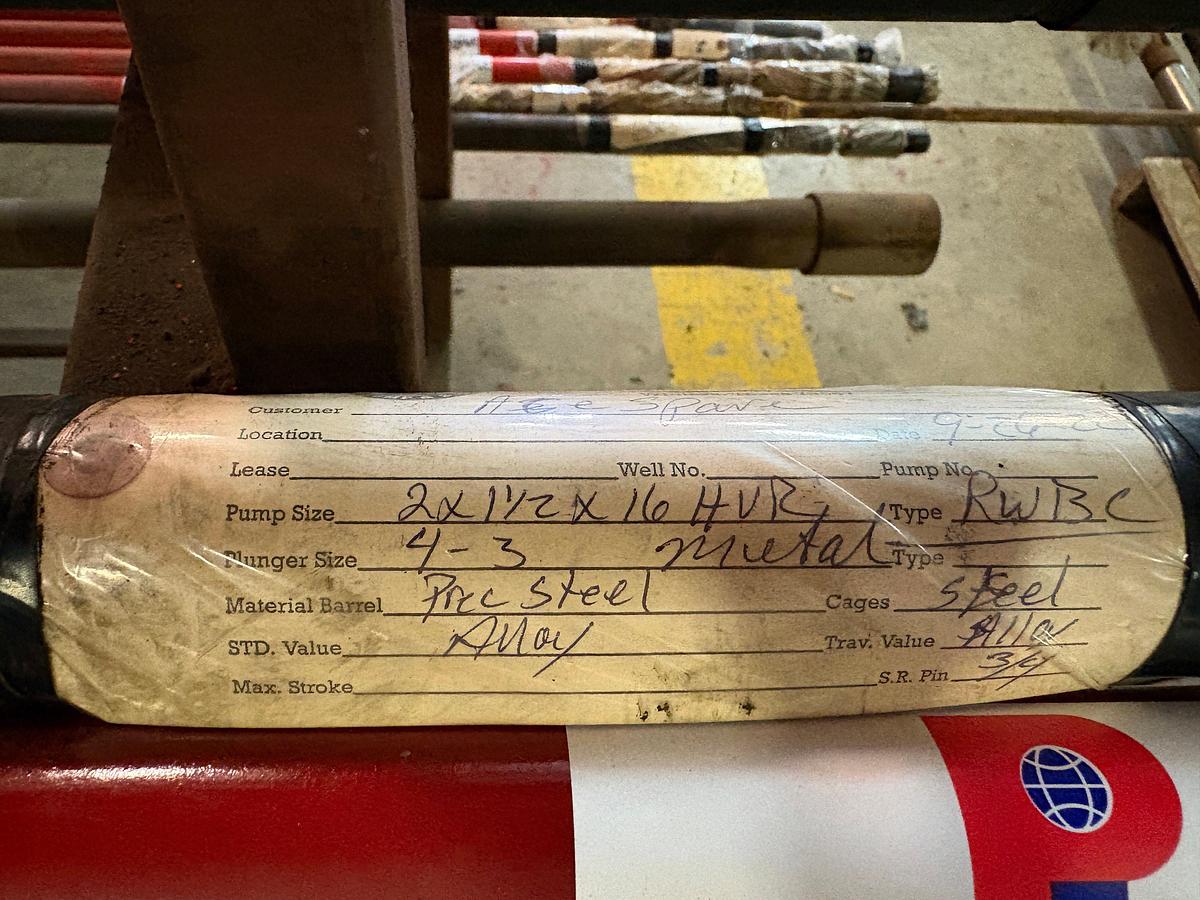 Customer Spare
Location Date
Lease Well No. Pump No.
Pump Size 2 x 1 1/2 x 16 HVR, Type RWBC
Plunger Size 4-3 metal Type
Material Barrel Prec Steel Cages Steel
STD. Value Alloy Trav. Value Alloy
Max. Stroke S.R. Pin 3/4